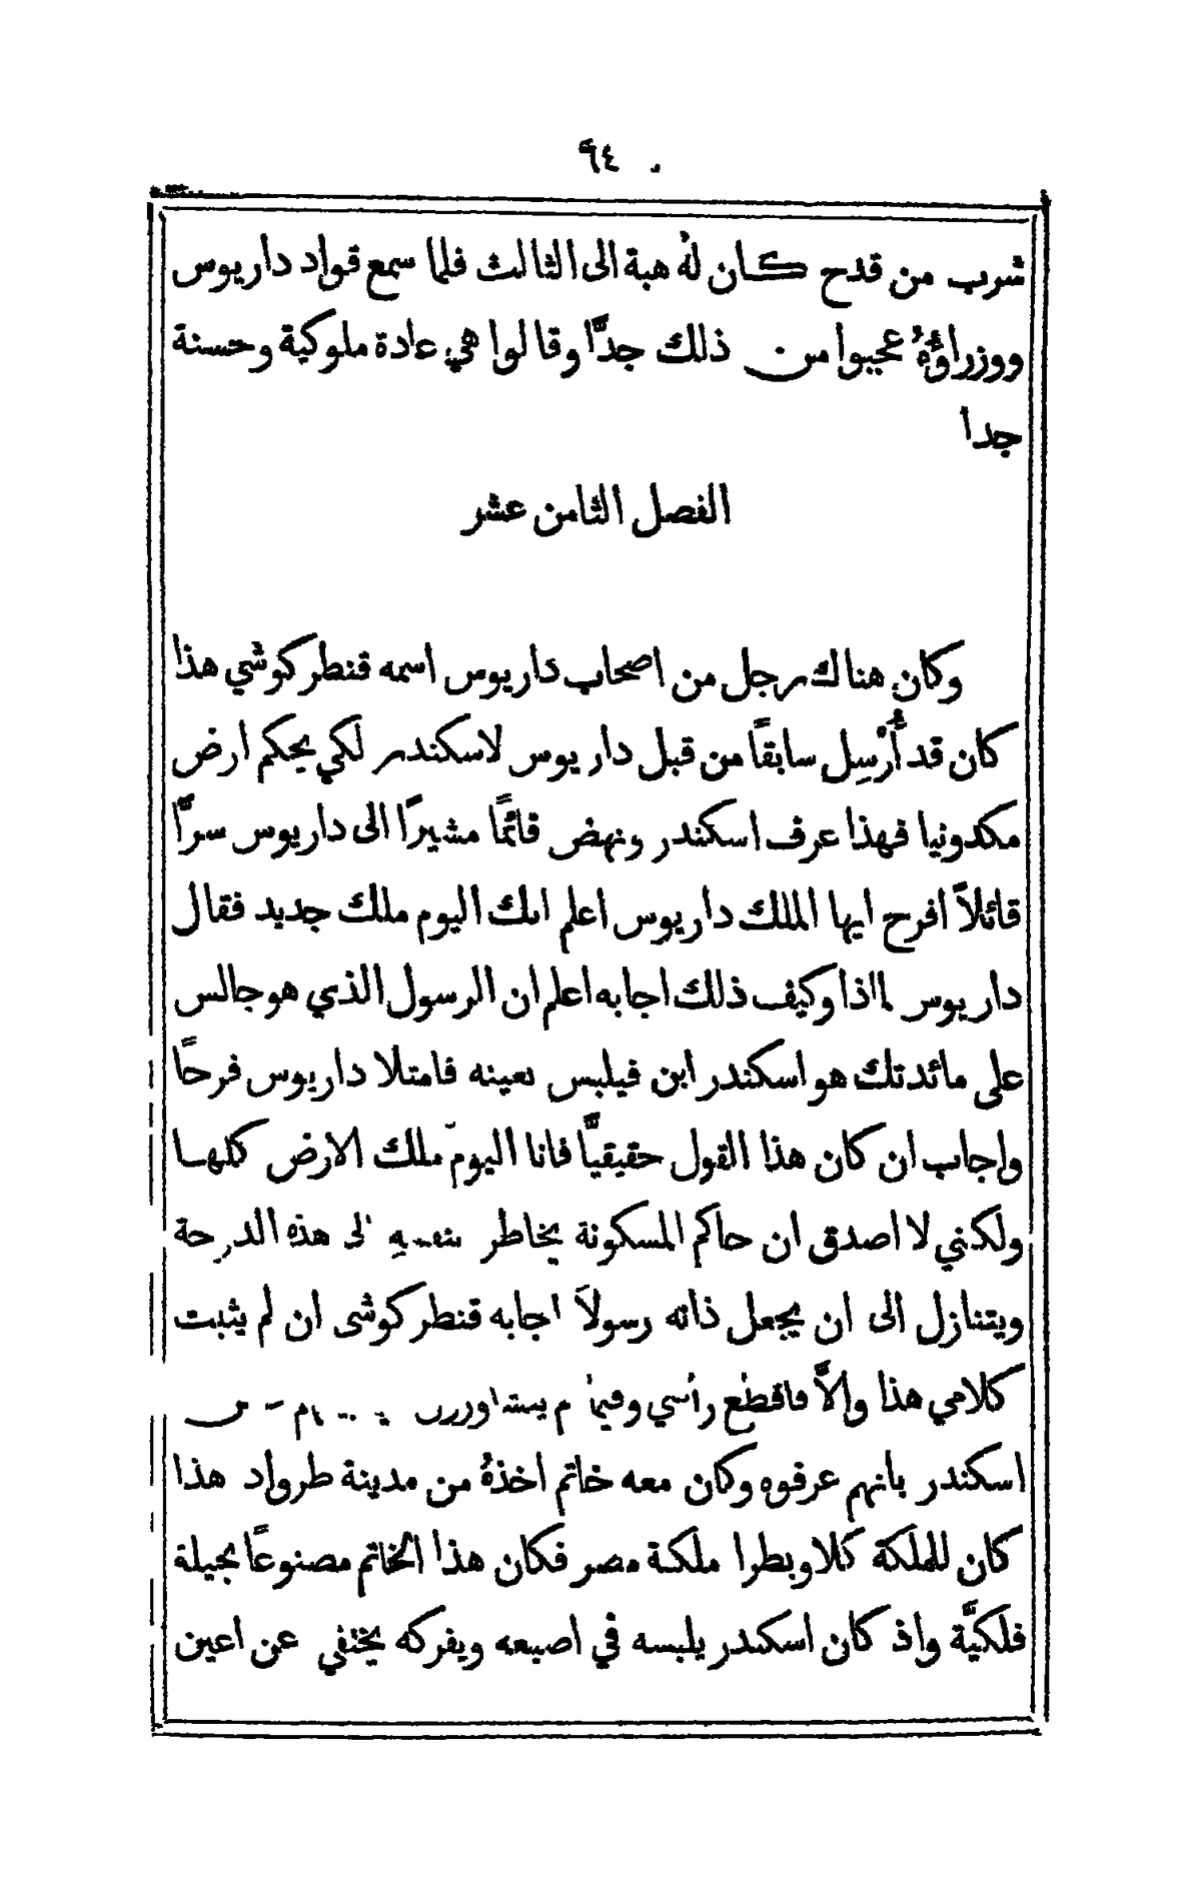 ٦٤
شرب من قدح كان لهُ هبة الى الثالث فلما سمع قواد داريوس
ووزراؤهُ عجبوا من ذلك جدًّا وقالوا هي عادة ملوكية وحسنة
جدا
الفصل الثامن عشر
وكان هناك رجل من اصحاب داريوس اسمه قنطركوشي هذا
كان قد أُرْسِل سابقًا من قبل داريوس لاسكندر لكي يحكم ارض
مكدونيا فهذا عرف اسكندر ونهض قائمًا مشيرًا الى داريوس سرًّا
قائلاً افرح ايها الملك داريوس اعلم انك اليوم ملك جديد فقال
داريوس لماذا وكيف ذلك اجابه اعلم ان الرسول الذي هو جالس
على مائدتك هو اسكندر ابن فيلبس بعينه فامتلا داريوس فرحًا
واجاب ان كان هذا القول حقيقيًّا فانا اليوم ملك الارض كلها
ولكني لا اصدق ان حاكم المسكونة يخاطر بنفسهِ الى هذه الدرجة
ويتنازل الى ان يجعل ذاته رسولاً اجابه قنطركوشى ان لم يثبت
كلامي هذا والاَّ فاقطع رأسي وفيما
اسكندر بانهم عرفوه وكان معه خاتم اخذهُ من مدينة طرواد هذا
كان للملكة كلاوبطرا ملكة مصر فكان هذا الخاتم مصنوعًا بحيلة
فلكيَّة واذ كان اسكندر يلبسه في اصبعه ويفركه يختفي عن اعين